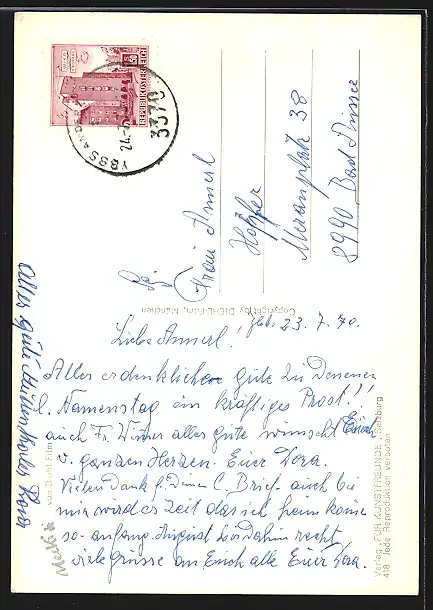 REPUBLIK ÖSTERREICH
YBBS AN DER
24.-7.
3370
Frau Annerl
Hopfer
Meranplatz 38
8990 Bad Aussee
Copyright by DIEHL-Film, München
Ybbs 23. 7. 70.
Liebe Annerl!
Alles erdenklich gute zu Deinem
l. Namenstag ein kräftiges Prost!!
auch Fr. Winter alles gute wünscht Euch
v. ganzen Herzen. Euer Dora.
Vielen Dank f. Deinen l. Brief. auch bei
mir wird es Zeit das ich heim komme
so anfang August bis dahin recht
viele grüsse an Euch alle Euer Dora.
Alles gute
von Diehl Film
Verlag „FÜR KUNSTFREUNDE" Salzburg
418 Jede Reproduktion verboten